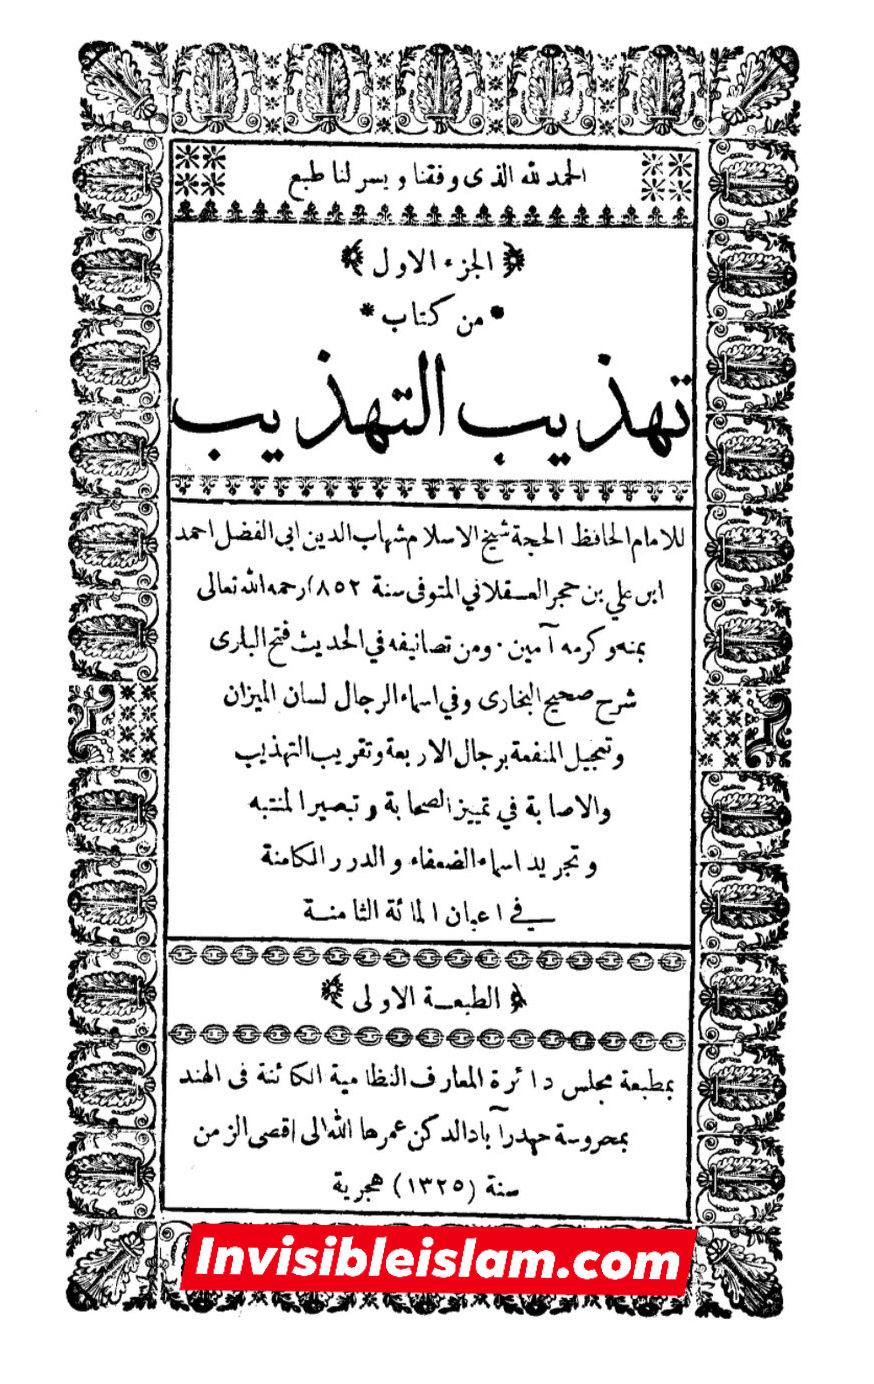 الحمد لله الذى وفقنا ويسر لنا طبع
الجزء الاول
من كتاب
تهذيب التهذيب
للامام الحافظ الحجة شيخ الاسلام شهاب الدين ابي الفضل احمد
ابن علي بن حجر العسقلاني المتوفى سنة ٨٥٢ رحمه الله تعالى
بمنه وكرمه آمين ٠ ومن تصانيفه في الحديث فتح البارى
شرح صحيح البخارى وفي اسماء الرجال لسان الميزان
وتعجيل المنفعة برجال الاربعة وتقريب التهذيب
والاصابة في تمييز الصحابة وتبصير المنتبه
وتجريد اسماء الضعفاء والدرر الكامنة
في اعيان المائة الثامنة
الطبعة الاولى
بمطبعة مجلس دائرة المعارف النظامية الكائنة فى الهند
بمحروسة حيدرآباد الدكن عمرها الله الى اقصى الزمن
سنة (١٣٢٥) هجرية
Invisibleislam.com